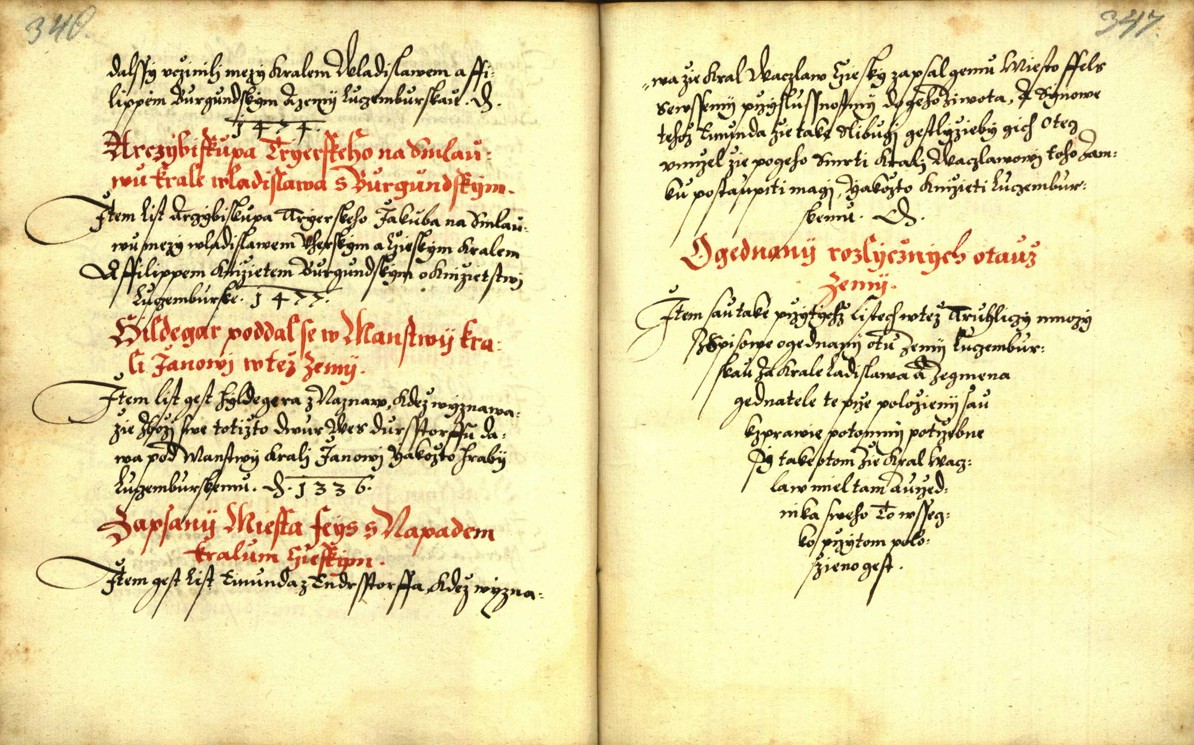 346.
dalssy vczinily mezy Kralem Wladislawem a ffi-
lippem Burgundskym A zemij Luczemburskau. D.
1474.
Arczybiskupa Tryerskeho na Smlau-
wu krale wladislawa s Burgundskym.
Item List Arczybiskupa Tryerskeho Jakuba na Smlau-
wu mezy wladislawem Vherskym a Czieskym Kralem
A ffilippem Knizietem Burgundskym o Knizietstwj
Luczemburske. 1477.
Hildegar poddal se w Manstwij kra-
li Janowi w tez Zemij.
Item List gest Hyldegera z Naznaw, Kdez wyznawa-
zie Zbozj swe totizto dwur Wes durssstorffu da-
wa pod Manstwij Kralj Janowj Yakozto hrabij
Luczemburskemu. D. 1336.
Zapsanij Miesta feys s Napadem
kralum Czieskym.
Item gest List Emunda z Endrsstorffa, Kdez wyzna-
347.
wa zie Kral Waczlaw Czieský zapsal gemu Miesto ffels
Sewssemij przyslussnostmij do geho ziwota, A Synowe
tehoz Emunda zie take Slibugj gestlyzieby gich Otecz
vmrzel zie po geho Smrti Kralj Waczlawowj toho Zam-
ku postaupiti magj, Yakozto Knizieti Luczembur-
skemu. D.
Ogednanij rozlycznych o tauz
Zemij.
Item sau take przytychz Listech w tez Truhliczy mnozy
Spisowe ogednanij o tu Zemij Luczembur-
skau Za Krale Ladislawa A Zegmena
gednatele te prze polozienij sau
kzprawie potomnij potrzebne
Jg take o tom zie Kral Wacz-
law miel tam Aurzed-
nika sweho To wsseg-
ko przytom polo-
zieno gest.